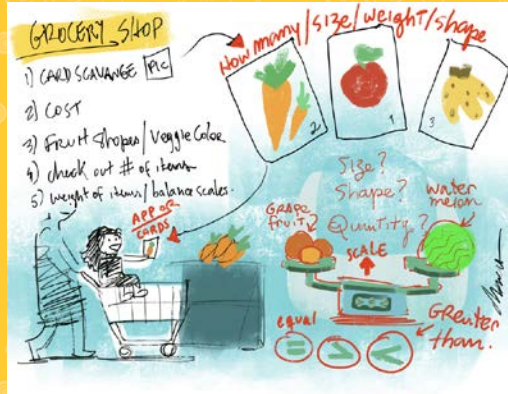 GROCERY SHOP
1) CARD SCAVANGE PIC
2) COST
3) Fruit Shapes/Veggie Color
4) check out # of items
5) weight of items/balance scales.
How many/size/weight/shape
2
1
3
APP OR
CARDS
Size?
Shape?
Quantity?
GRAPE
fruit?
water
melon
SCALE
equal
= > <
Greater
than.